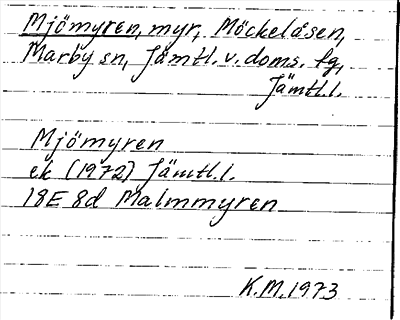 Mjömyren, myr, Möckelåsen,
Marby sn, Jämtl. v. doms. tg,
Jämtl.l.
Mjömyren
ek (1972) Jämtl.l.
18E 8d Malmmyren
K.M. 1973